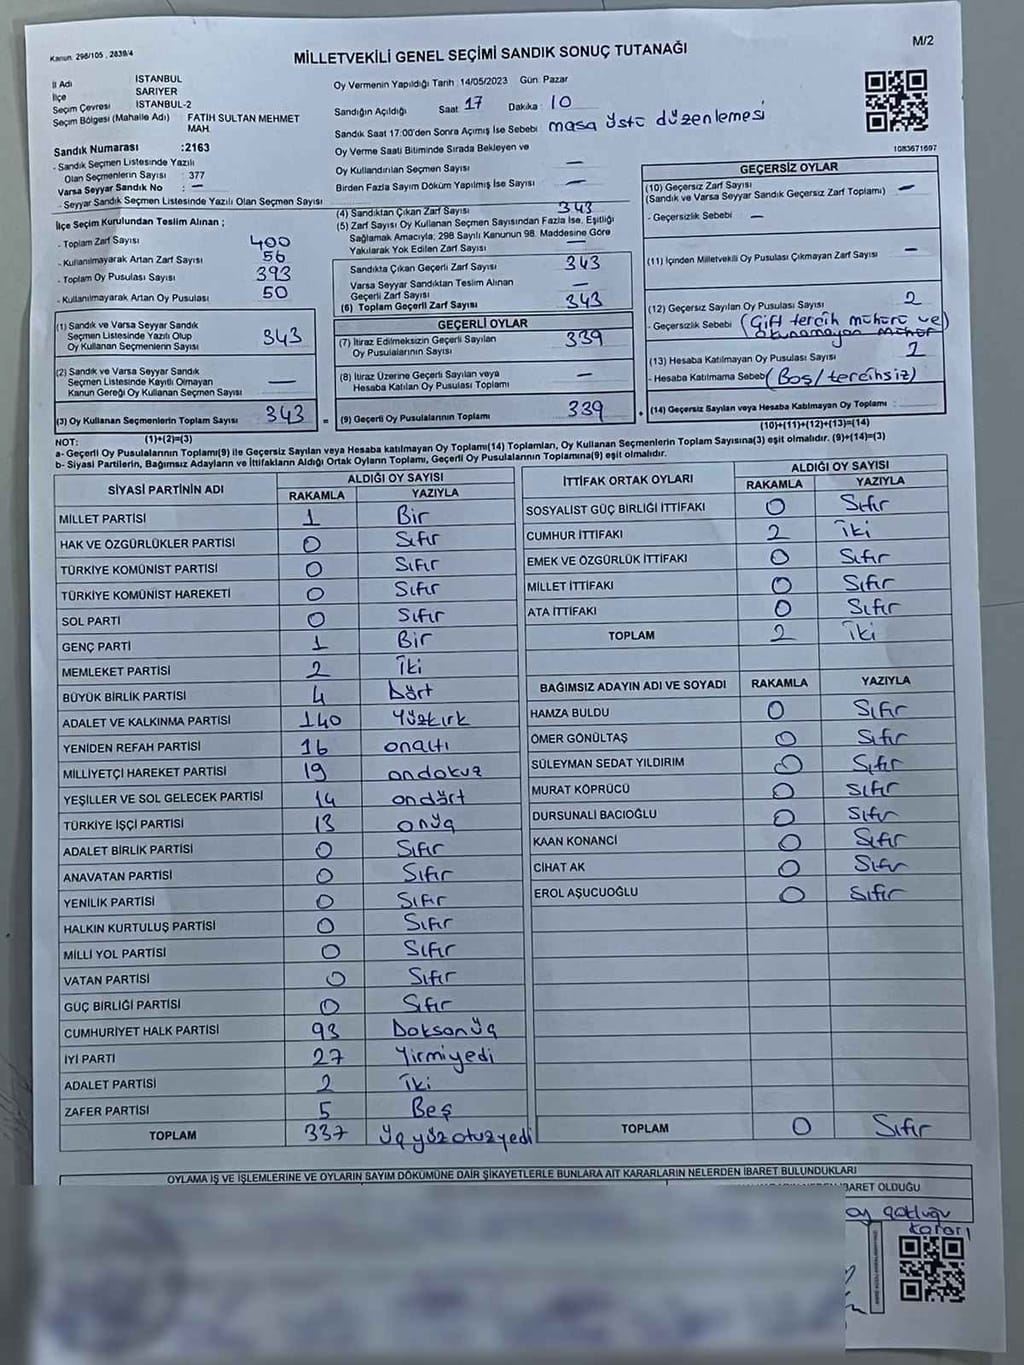 Kanun: 298/105, 2839/4
MİLLETVEKİLİ GENEL SEÇİMİ SANDIK SONUÇ TUTANAĞI
M/2
İl Adı İSTANBUL
İlçe SARIYER
Seçim Çevresi İSTANBUL-2
Seçim Bölgesi (Mahalle Adı) FATİH SULTAN MEHMET MAH.
Sandık Numarası :2163
- Sandık Seçmen Listesinde Yazılı
Olan Seçmenlerin Sayısı : 377
Varsa Seyyar Sandık No : —
- Seyyar Sandık Seçmen Listesinde Yazılı Olan Seçmen Sayısı
Oy Vermenin Yapıldığı Tarih :14/05/2023 Gün: Pazar
Sandığın Açıldığı Saat 17 Dakika : 10
Sandık Saat 17:00'den Sonra Açımış İse Sebebi masa üstü düzenlemesi
Oy Verme Saati Bitiminde Sırada Bekleyen ve
Oy Kullandırılan Seçmen Sayısı —
Birden Fazla Sayım Döküm Yapılmış İse Sayısı —
1083671697
İlçe Seçim Kurulundan Teslim Alınan ;
- Toplam Zarf Sayısı 400
- Kullanılmayarak Artan Zarf Sayısı 56
- Toplam Oy Pusulası Sayısı 393
- Kullanılmayarak Artan Oy Pusulası 50
(1) Sandık ve Varsa Seyyar Sandık
Seçmen Listesinde Yazılı Olup
Oy Kullanan Seçmenlerin Sayısı 343
(2) Sandık ve Varsa Seyyar Sandık
Seçmen Listesinde Kayıtlı Olmayan
Kanun Gereği Oy Kullanan Seçmen Sayısı —
(3) Oy Kullanan Seçmenlerin Toplam Sayısı 343
(1)+(2)=(3)
(4) Sandıktan Çıkan Zarf Sayısı 343
(5) Zarf Sayısı Oy Kullanan Seçmen Sayısından Fazla İse, Eşitliği
Sağlamak Amacıyla; 298 Sayılı Kanunun 98. Maddesine Göre
Yakılarak Yok Edilen Zarf Sayısı —
Sandıkta Çıkan Geçerli Zarf Sayısı 343
Varsa Seyyar Sandıktan Teslim Alınan
Geçerli Zarf Sayısı —
(6) Toplam Geçerli Zarf Sayısı 343
GEÇERLİ OYLAR
(7) İtiraz Edilmeksizin Geçerli Sayılan
Oy Pusulalarının Sayısı 339
(8) İtiraz Üzerine Geçerli Sayılan veya
Hesaba Katılan Oy Pusulası Toplamı —
= (9) Geçerli Oy Pusulalarının Toplamı 339
GEÇERSİZ OYLAR
(10) Geçersiz Zarf Sayısı —
(Sandık ve Varsa Seyyar Sandık Geçersiz Zarf Toplamı)
- Geçersizlik Sebebi —
(11) İçinden Milletvekili Oy Pusulası Çıkmayan Zarf Sayısı —
(12) Geçersiz Sayılan Oy Pusulası Sayısı 2
- Geçersizlik Sebebi (Çift tercih mühürü ve
okunamayan mühür
(13) Hesaba Katılmayan Oy Pusulası Sayısı
- Hesaba Katılmama Sebebi (Boş/tercihsiz)
(14) Geçersiz Sayılan veya Hesaba Katılmayan Oy Toplamı
(10)+(11)+(12)+(13)=(14)
NOT:
a- Geçerli Oy Pusulalarının Toplamı(9) ile Geçersiz Sayılan veya Hesaba katılmayan Oy Toplamı(14) Toplamları, Oy Kullanan Seçmenlerin Toplam Sayısına(3) eşit olmalıdır. (9)+(14)=(3)
b- Siyasi Partilerin, Bağımsız Adayların ve İttifakların Aldığı Ortak Oyların Toplamı, Geçerli Oy Pusulalarının Toplamına(9) eşit olmalıdır.
SİYASİ PARTİNİN ADI ALDIĞI OY SAYISI
RAKAMLA YAZIYLA
MİLLET PARTİSİ 1 Bir
HAK VE ÖZGÜRLÜKLER PARTİSİ 0 Sıfır
TÜRKİYE KOMÜNİST PARTİSİ 0 Sıfır
TÜRKİYE KOMÜNİST HAREKETİ 0 Sıfır
SOL PARTİ 0 Sıfır
GENÇ PARTİ 1 Bir
MEMLEKET PARTİSİ 2 İki
BÜYÜK BİRLİK PARTİSİ 4 Dört
ADALET VE KALKINMA PARTİSİ 140 Yüzkırk
YENİDEN REFAH PARTİSİ 16 onaltı
MİLLİYETÇİ HAREKET PARTİSİ 19 ondokuz
YEŞİLLER VE SOL GELECEK PARTİSİ 14 ondört
TÜRKİYE İŞÇİ PARTİSİ 13 onüç
ADALET BİRLİK PARTİSİ 0 Sıfır
ANAVATAN PARTİSİ 0 Sıfır
YENİLİK PARTİSİ 0 Sıfır
HALKIN KURTULUŞ PARTİSİ 0 Sıfır
MİLLİ YOL PARTİSİ 0 Sıfır
VATAN PARTİSİ 0 Sıfır
GÜÇ BİRLİĞİ PARTİSİ 0 Sıfır
CUMHURİYET HALK PARTİSİ 93 Doksanüç
İYİ PARTİ 27 Yirmiyedi
ADALET PARTİSİ 2 İki
ZAFER PARTİSİ 5 Beş
TOPLAM 337 üçyüzotuzyedi
İTTİFAK ORTAK OYLARI ALDIĞI OY SAYISI
RAKAMLA YAZIYLA
SOSYALİST GÜÇ BİRLİĞİ İTTİFAKI 0 Sıfır
CUMHUR İTTİFAKI 2 İki
EMEK VE ÖZGÜRLÜK İTTİFAKI 0 Sıfır
MİLLET İTTİFAKI 0 Sıfır
ATA İTTİFAKI 0 Sıfır
TOPLAM 2 İki
BAĞIMSIZ ADAYIN ADI VE SOYADI RAKAMLA YAZIYLA
HAMZA BULDU 0 Sıfır
ÖMER GÖNÜLTAŞ 0 Sıfır
SÜLEYMAN SEDAT YILDIRIM 0 Sıfır
MURAT KÖPRÜCÜ 0 Sıfır
DURSUNALİ BACIOĞLU 0 Sıfır
KAAN KONANCİ 0 Sıfır
CİHAT AK 0 Sıfır
EROL AŞUCUOĞLU 0 Sıfır
TOPLAM 0 Sıfır
OYLAMA İŞ VE İŞLEMLERİNE VE OYLARIN SAYIM DÖKÜMÜNE DAİR ŞİKAYETLERLE BUNLARA AİT KARARLARIN NELERDEN İBARET BULUNDUKLARI
İBARET OLDUĞU
oy çokluğu
kararı